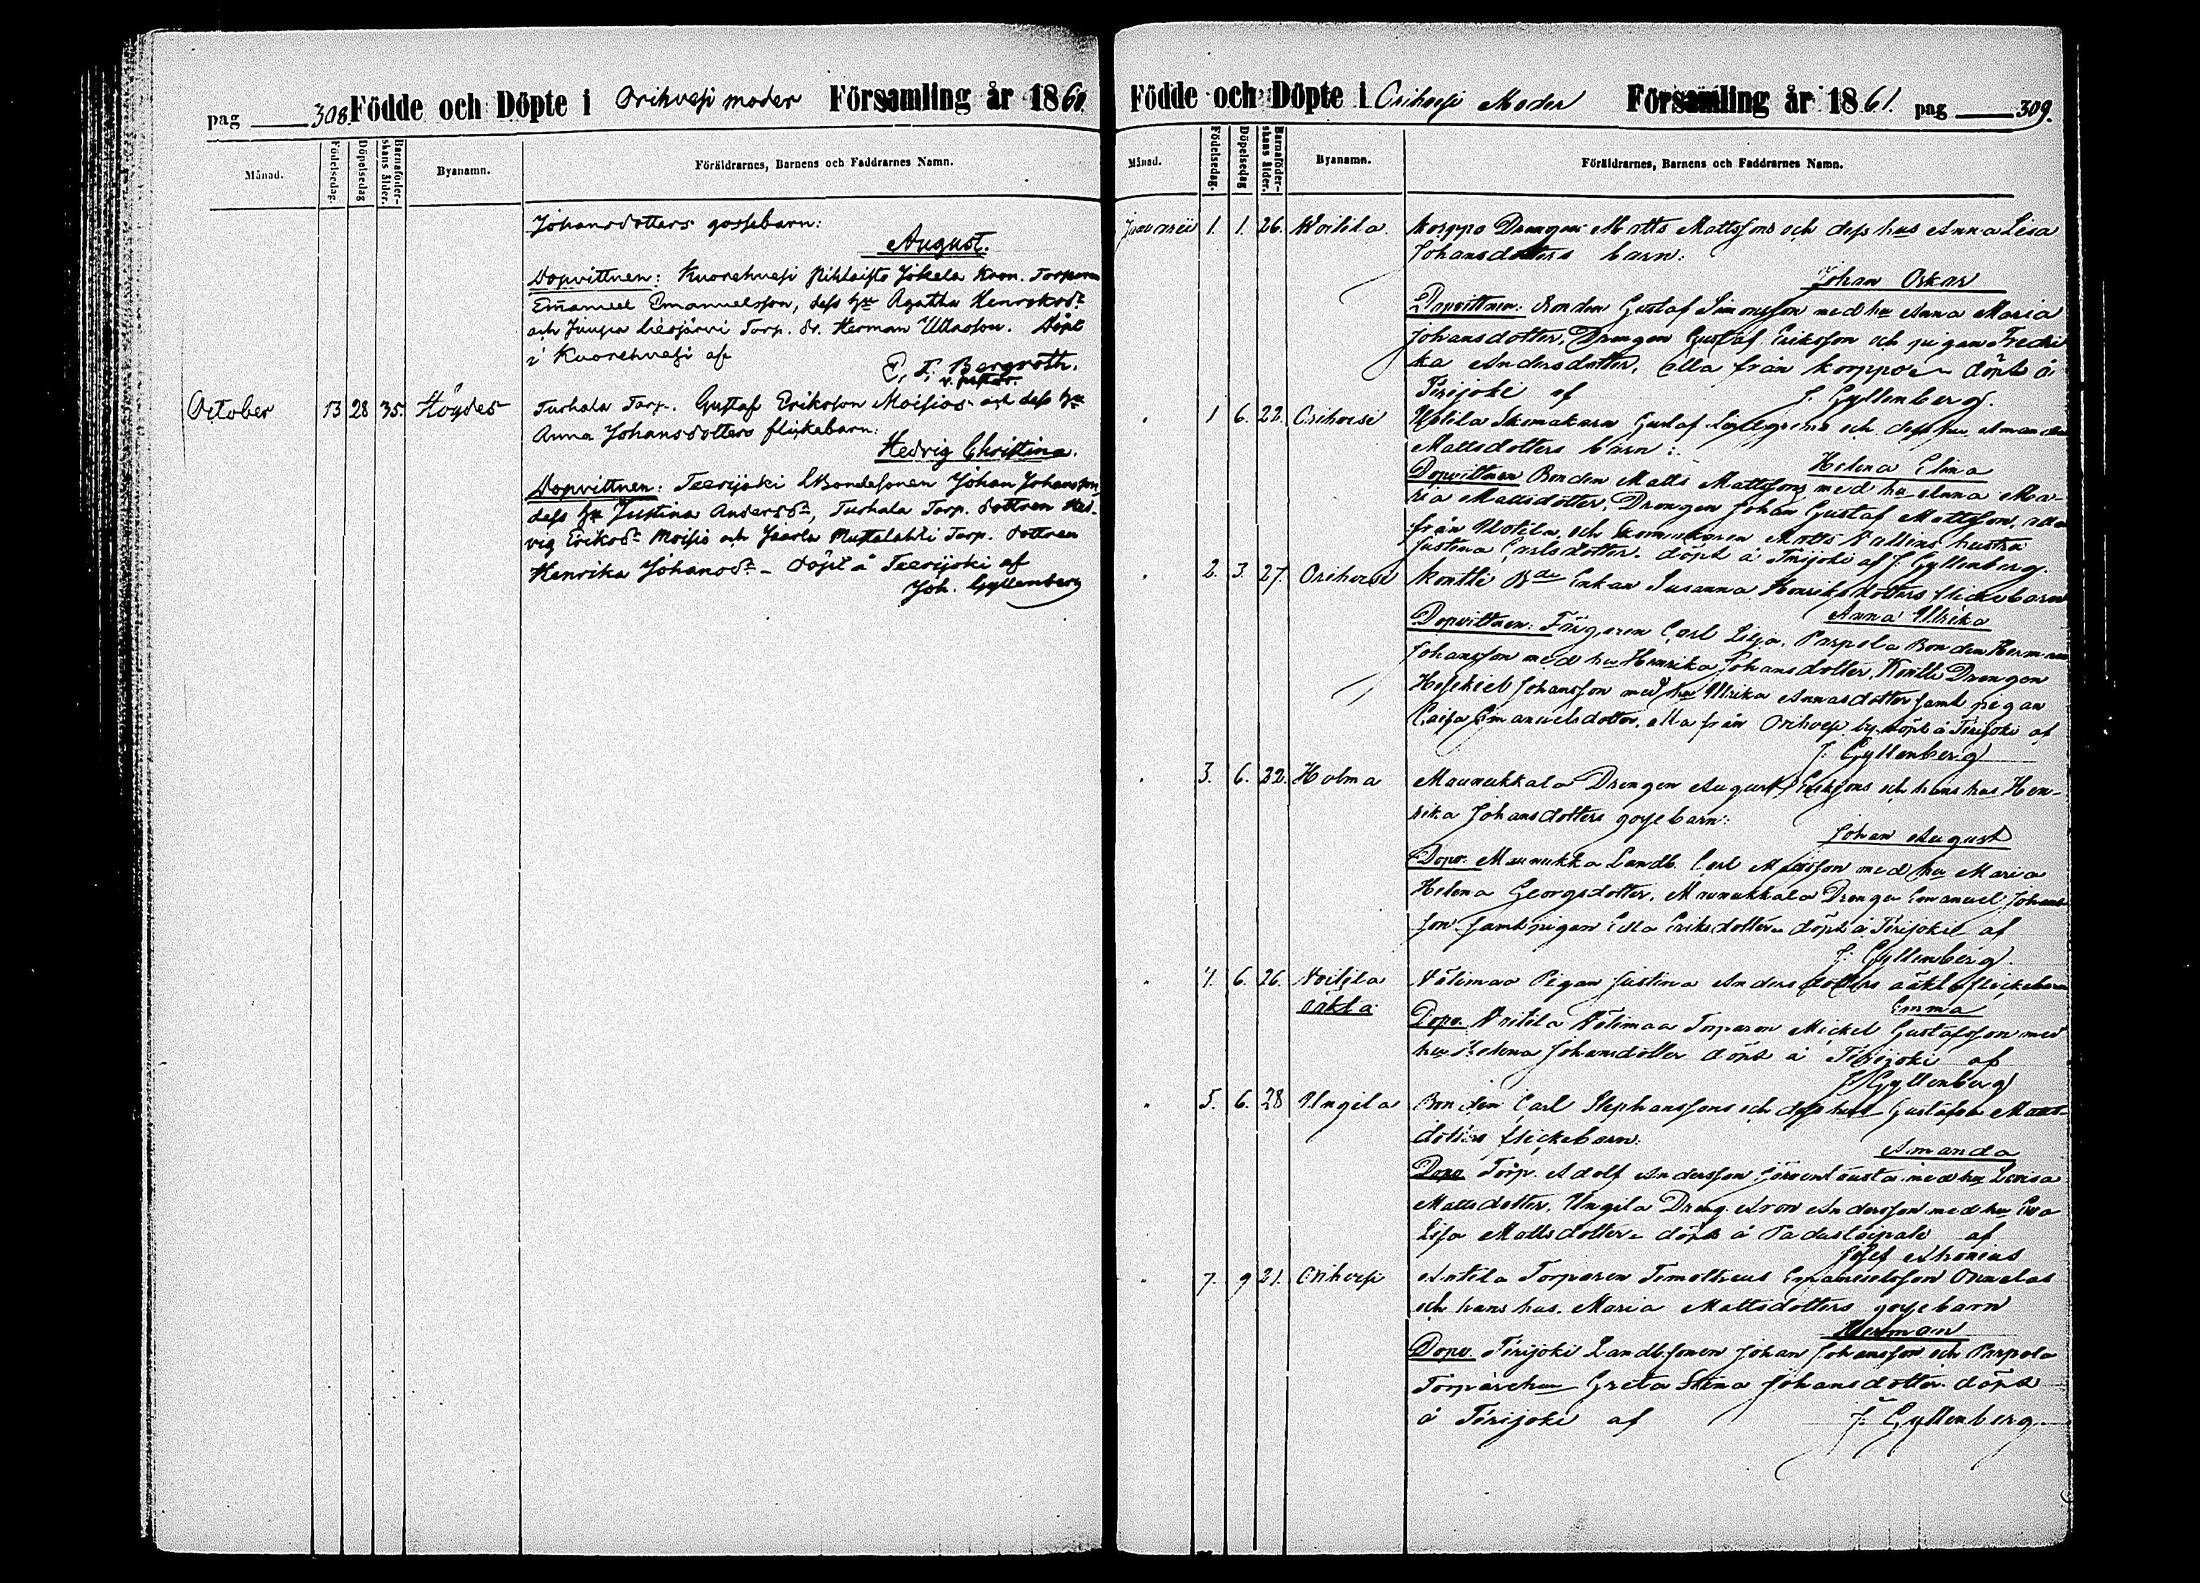 pag 308. Födde och Döpte i Orihvesi moder Församling år 1860.
Månad. Födelsedag. Döpelsedag Barnaföderskans ålder. Byanamn. Föräldrarnes, Barnens och Faddrarnes Namn.
Johansdotters gossebarn:
August.
Dopvittnen: Kuorehvesi Pihlaisto Jokela Kron. Torparen
Emanuel Emanuelsson, dess hu Agatha Henriksdr
och Jungin Liesjärvi Torp. dr. Herman Ullasson. Döpt
i Kuorehvesi af
E. F. Bergroth.
v. pastor.
October 13 28 35. Höydes Turhala Torp. Gustaf Eriksson Moisios och dess hu
Anna Johansdotters flickebarn:
Hedvig Christina.
Dopvittnen: Teerijoki LBondesonen Johan Johansson,
dess hu Justina Andersdr, Turhala Torp. dottren Hed-
vig Eriksdr Moisio och Jaarla Mustalahti Torp. dottren
Henrika Johansdr - döpt å Teerijoki af
Joh. Gyllenberg
Födde och Döpte i Orihvesi Moder Församling år 1861. pag 309.
Månad. Födelsedag. Döpelsedag Barnaföderskans ålder. Byanamn. Föräldrarnes, Barnens och Faddrarnes Namn.
Januarii 1. 1. 26. Voitila. Korppo Drengen Matts Mattssons och dess hus Anna Lisa
Johansdotters barn:
Johan Oskar
Dopvittnen: Bonden Gustaf Simonsson med hu Anna Maria
Johansdotter, Drengen Gustaf Eriksson och pigan Fredri
ka Andersdotter, alla från Korppo döpt å
Tirijoki af J. Gyllenberg.
" 1 6. 22. Orihvesi Uotila Skomakaren Gustaf och dess hus Amanda
Mattsdotters barn:
Helena Elina
Dopvittnen Bonden Matts Mattsson med hu Anna Ma-
ria Mattsdotter, Drengen Johan Gustaf Mattsson, alla
från Uotila, och Skomakaren Matts Vallens hustru
Justina Carlsdotter. döpt å Tirijoki af J. Gyllenberg.
" 2. 3. 27. Orihvesi Konttli Enkan Susanna Henriksdotters flickebarn
Anna Ulrika
Dopvittnen: Färgaren Carl Lilja, Parpola Bonden Herman
Johansson med hu Henrika Johansdotter, Konttli Drengen
Hesekiel Johansson med hu Ulrika Annasdotter samt pigan
Caisa Emanuelsdotter, alla från Orihvesi by. döpt å Tirijoki af
J. Gyllenberg
" 3. 6. 22. Holma Maunukkala Drengen August Erikssons och hans hus Hen-
rika Johansdotters gossebarn:
Johan August
Dopv. Maunukka Landb. Carl Mattsson med hu Maria
Helena Georgsdotter, Maunukkala Drengen Emanuel Johans-
son samt pigan Eva Eriksdotter döpt å Tirijoki af
J. Gyllenberg.
" 4. 6. 26. Voitila Välimaa Pigan Justina Andersdotters oäkta flickebarn
oäkta Emma
Dopv. Voitila Välimaa Torparen Mickel Gustafsson med
hu Helena Johansdotter döpt å Tirijoki af
J. Gyllenberg
" 5. 6. 28 Ungila Bonden Carl Stephanssons och dess hus Gustafva Matts-
dotters flickebarn:
Amanda
Dopv. Torp. Adolf Andersson Järventausta med hu Lovisa
Mattsdotter, Ungila Dreng Aron Andersson med hu Eva
Lisa Mattsdotter döpt å Padustaipale af
Josef Ahonius
" 7. 9 21. Orihvesi Anttila Torparen Timotheus Emanuelsson Onnelas
och hans hus. Maria Mattsdotters gossebarn
Herman
Dopv. Tirijoki Landb.sonen Johan Johansson och Parpola
Torpare hu Greta Stina Johansdotter döpt
å Tirijoki af J. Gyllenberg.